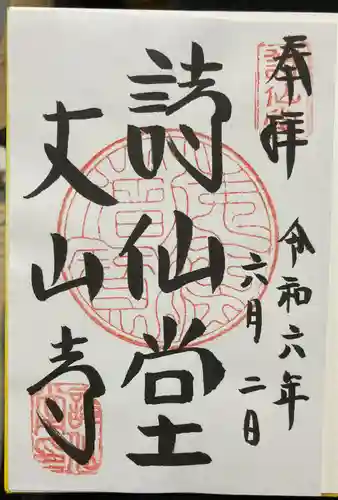 奉拜
令和六年
六月二日
詩仙堂
丈山寺